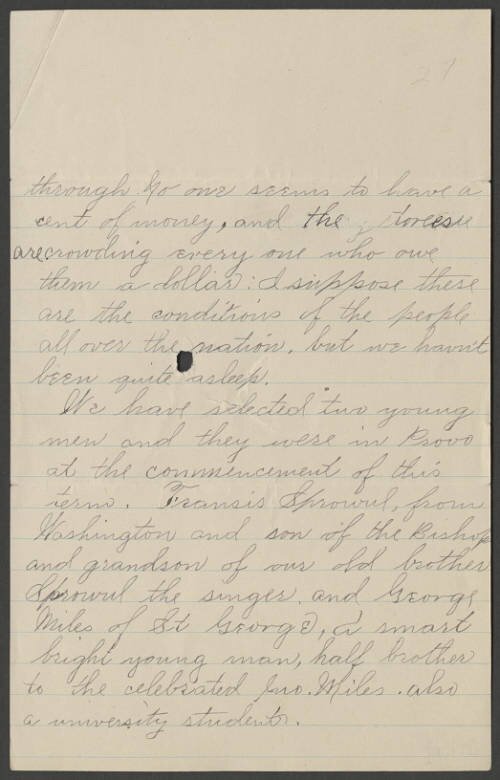 27
through. No one seems to have a
cent of money, and the stores
are crowding every one who owe
them a dollar: I suppose these
are the conditions of the people
all over the nation, but we havn't
been quite asleep.
We have selected two young
men and they were in Provo
at the commencement of this
term. Fransis Sprowul, from
Washington and son of the Bishop
and grandson of our old brother
Sprowul the singer. and George
Miles of St George, a smart
bright young man, half brother
to the celebrated Jno. Miles. also
a university student.